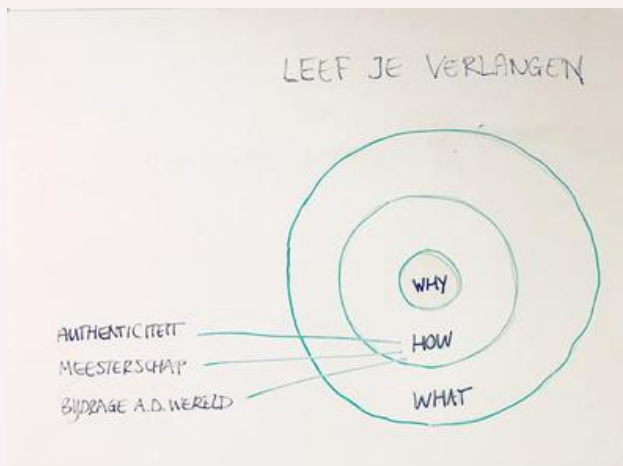 LEEF JE VERLANGEN
WHY
HOW
WHAT
AUTHENTICITEIT
MEESTERSCHAP
BIJDRAGE A.D. WERELD